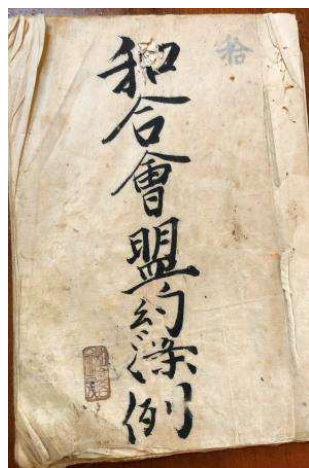 拾
和合會盟約條例